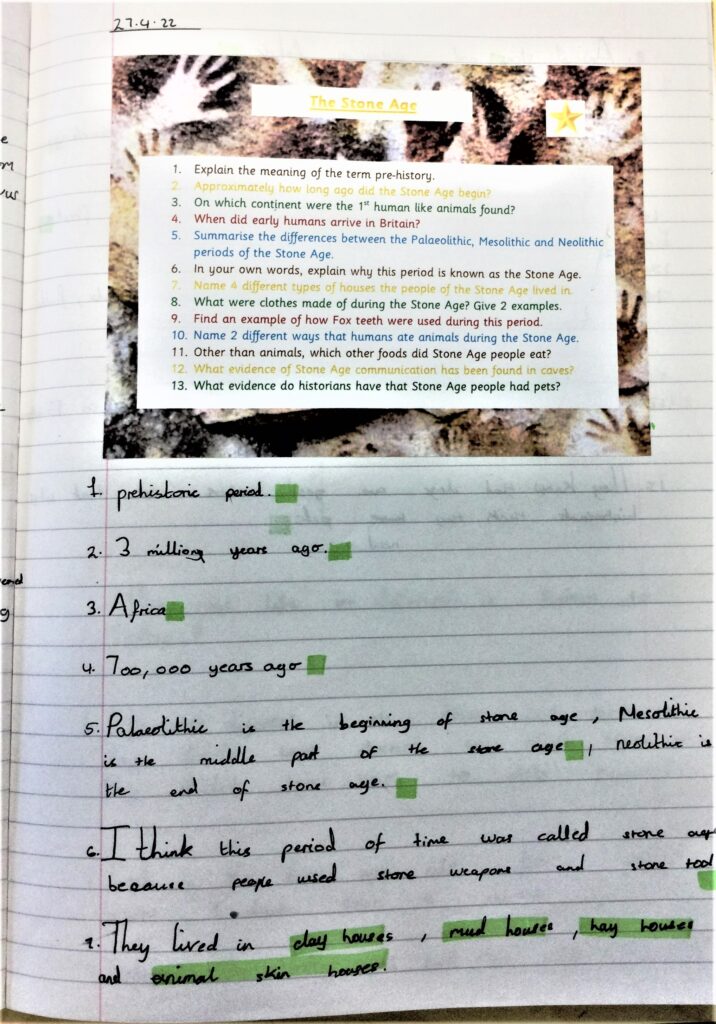 27.4.22
The Stone Age
1. Explain the meaning of the term pre-history.
2. Approximately how long ago did the Stone Age begin?
3. On which continent were the 1st human like animals found?
4. When did early humans arrive in Britain?
5. Summarise the differences between the Palaeolithic, Mesolithic and Neolithic
periods of the Stone Age.
6. In your own words, explain why this period is known as the Stone Age.
7. Name 4 different types of houses the people of the Stone Age lived in.
8. What were clothes made of during the Stone Age? Give 2 examples.
9. Find an example of how Fox teeth were used during this period.
10. Name 2 different ways that humans ate animals during the Stone Age.
11. Other than animals, which other foods did Stone Age people eat?
12. What evidence of Stone Age communication has been found in caves?
13. What evidence do historians have that Stone Age people had pets?
1. prehistoric period.
2. 3 million years ago.
3. Africa
4. 700,000 years ago
5. Palaeolithic is the beginning of stone age, Mesolithic
is the middle part of the stone age, neolithic is
the end of stone age.
6. I think this period of time was called stone age
because people used stone weapons and stone tool
7. They lived in clay houses, mud houses, hay houses
and animal skin houses.